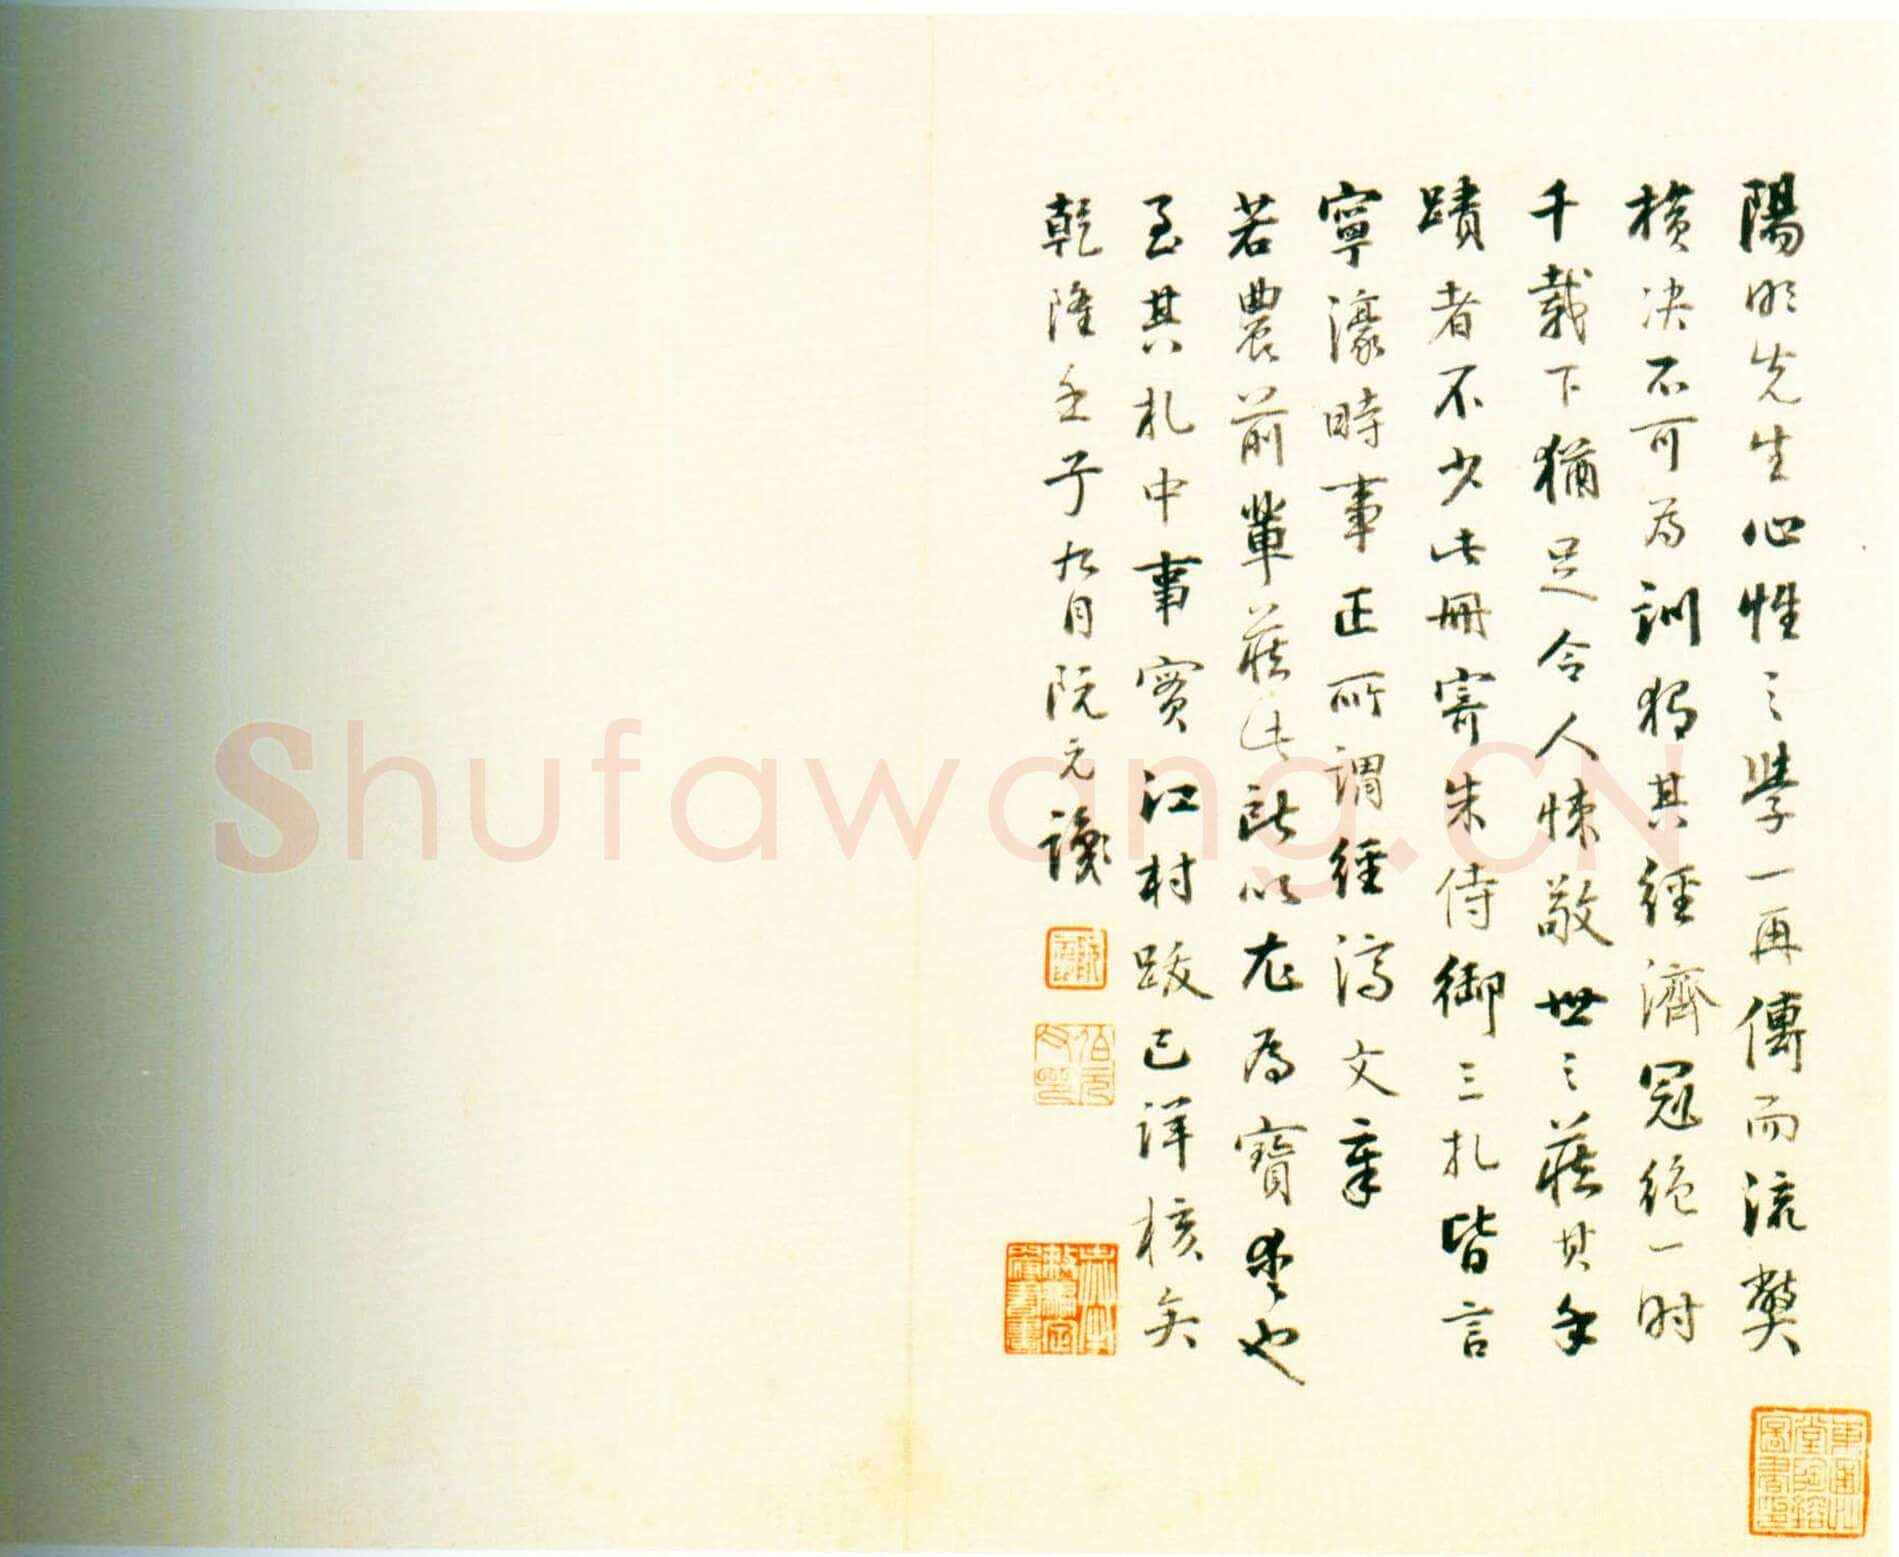 陽明先生心性之學一再傳而流獘
橫决不可為訓獨其經濟冠絕一時
千載下猶足令人悚敬世之藏其手
蹟者不少此冊寄朱侍御三札皆言
寧濠時事正所謂經濟文章
若農前輩藏此所以尤為寶愛也
至其札中事實江村跋已詳核矣
乾隆壬子九月阮元識
Shufawang.CN